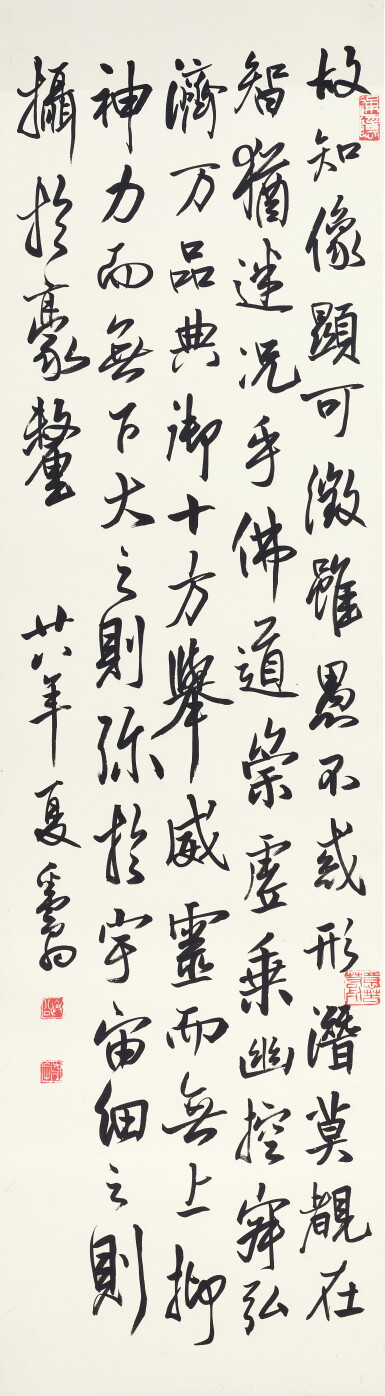 故知像顯可徵雖愚不惑形潛莫覩在
智猶迷況乎佛道崇虛乘幽控寂弘
濟万品典御十方舉威靈而無上抑
神力而無下大之則弥於宇宙細之則
攝於豪釐
廿八年夏